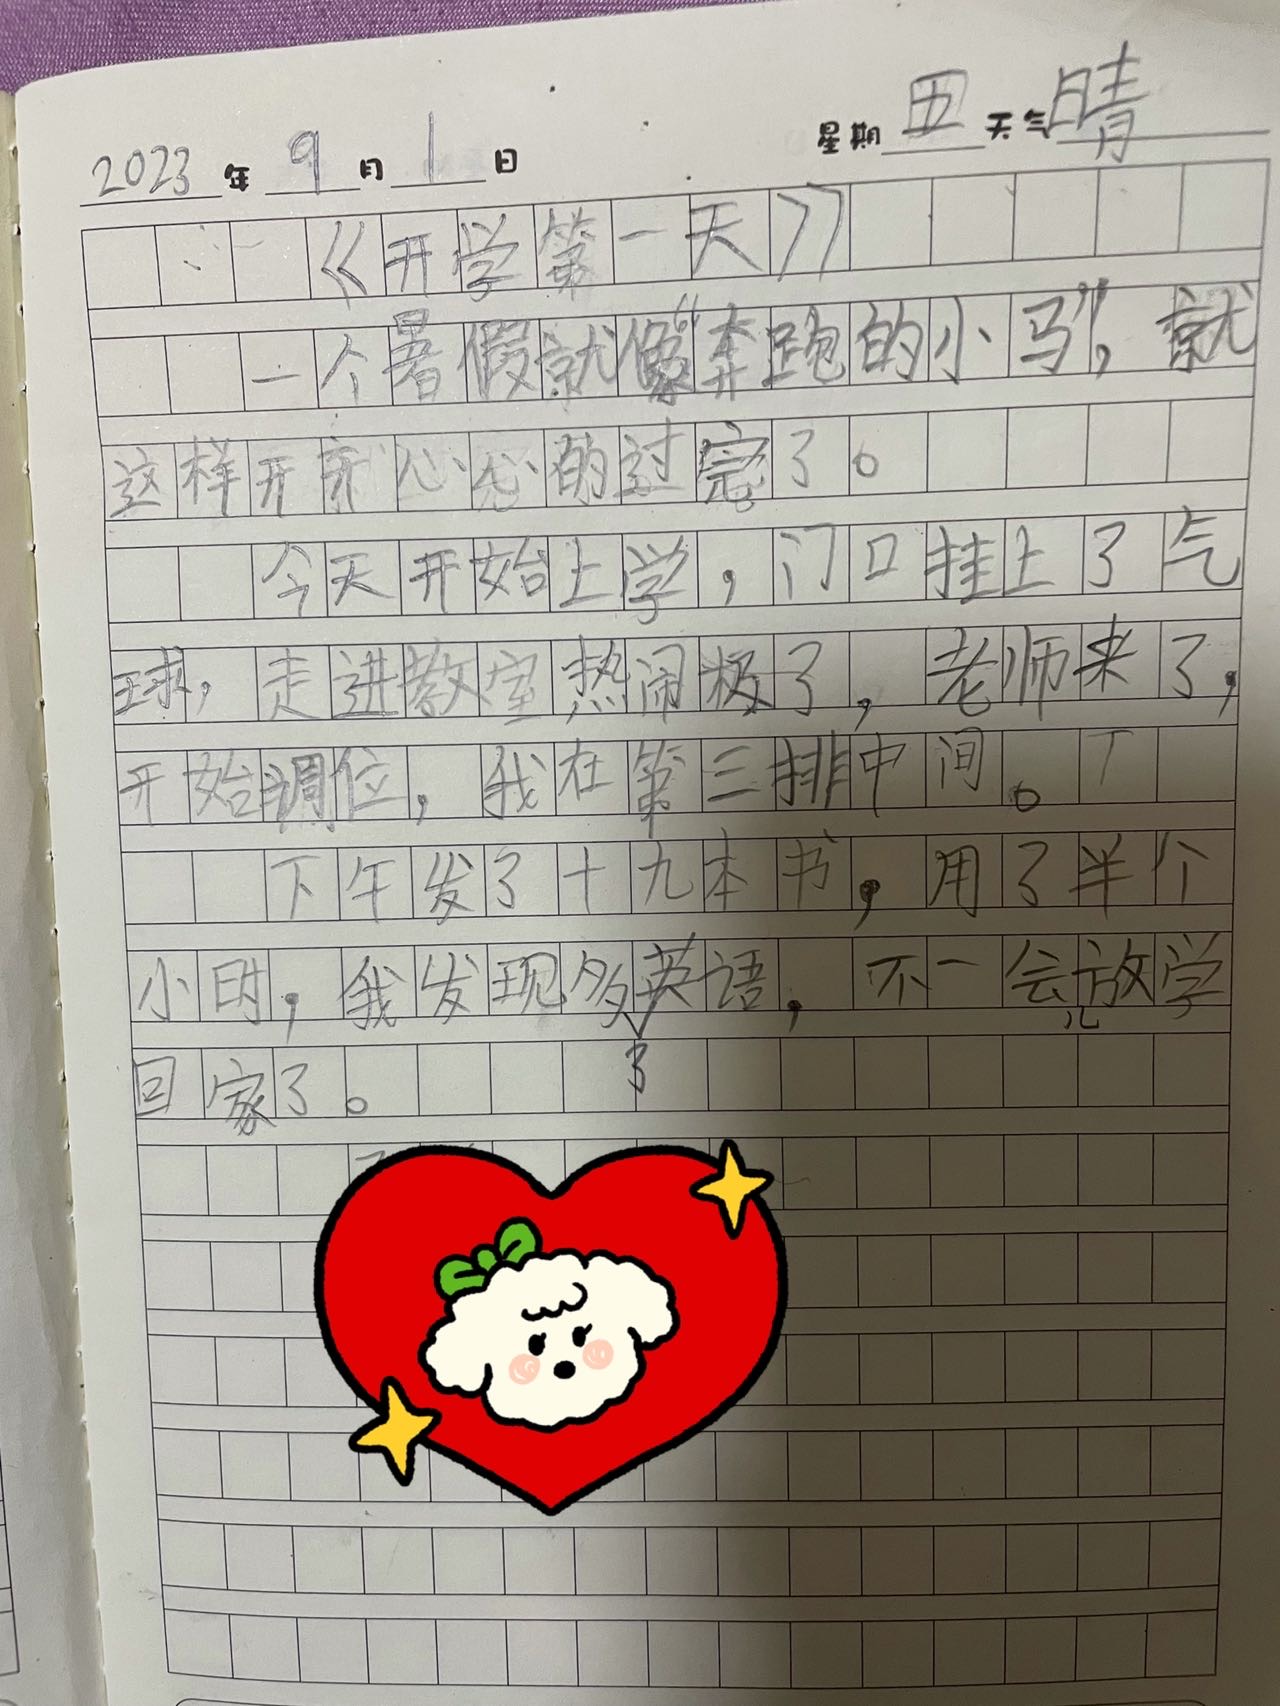 2023年9月1日 星期五 天气晴
《开学第一天》
一个暑假就像“奔跑的小马”，就
这样开开心心的过完了。
今天开始上学，门口挂上了气
球，走进教室热闹极了，老师来了，
开始调位，我在第三排中间。
下午发了十九本书，用了半个
小时，我发现多了英语，不一会儿放学
回家了。